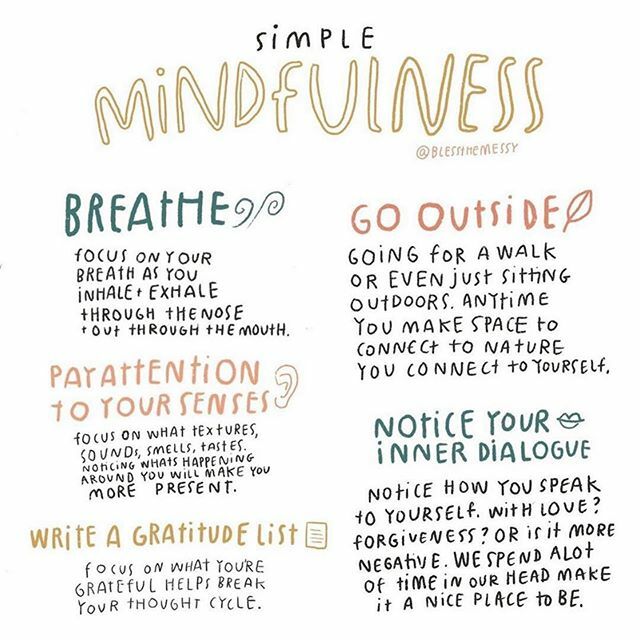 SiMPLE
MiNDfULNESS
@BLESSTHEMESSY
BREATHE
fOCUS ON YOUR
BREATH AS YOU
iNHALE + EXHALE
THROUGH THE NOSE
+ OUT THROUGH THE MOUTH.
PAY ATTENTiON
TO YOUR SENSES
fOCUS ON WHAT TEXTURES,
SOUNDS, SMELLS, TASTES.
NOTiCiNG WHATS HAPPENiNG
AROUND YOU WiLL MAKE YOU
MORE PRESENT.
WRiTE A GRATiTUDE LiST
fOCUS ON WHAT YOU'RE
GRATEfUL HELPS BREAK
YOUR THOUGHT CYCLE.
GO OUTSiDE
GOiNG fOR A WALK
OR EVEN jUST SiTTiNG
OUTDOORS. ANYTiME
YOU MAKE SPACE TO
CONNECT TO NATURE
YOU CONNECT TO YOURSELf.
NOTiCE YOUR
iNNER DiALOGUE
NOTiCE HOW YOU SPEAK
TO YOURSELf. WiTH LOVE?
fORGiVENESS? OR iS iT MORE
NEGATiVE. WE SPEND ALOT
Of TiME iN OUR HEAD MAKE
iT A NiCE PLACE TO BE.